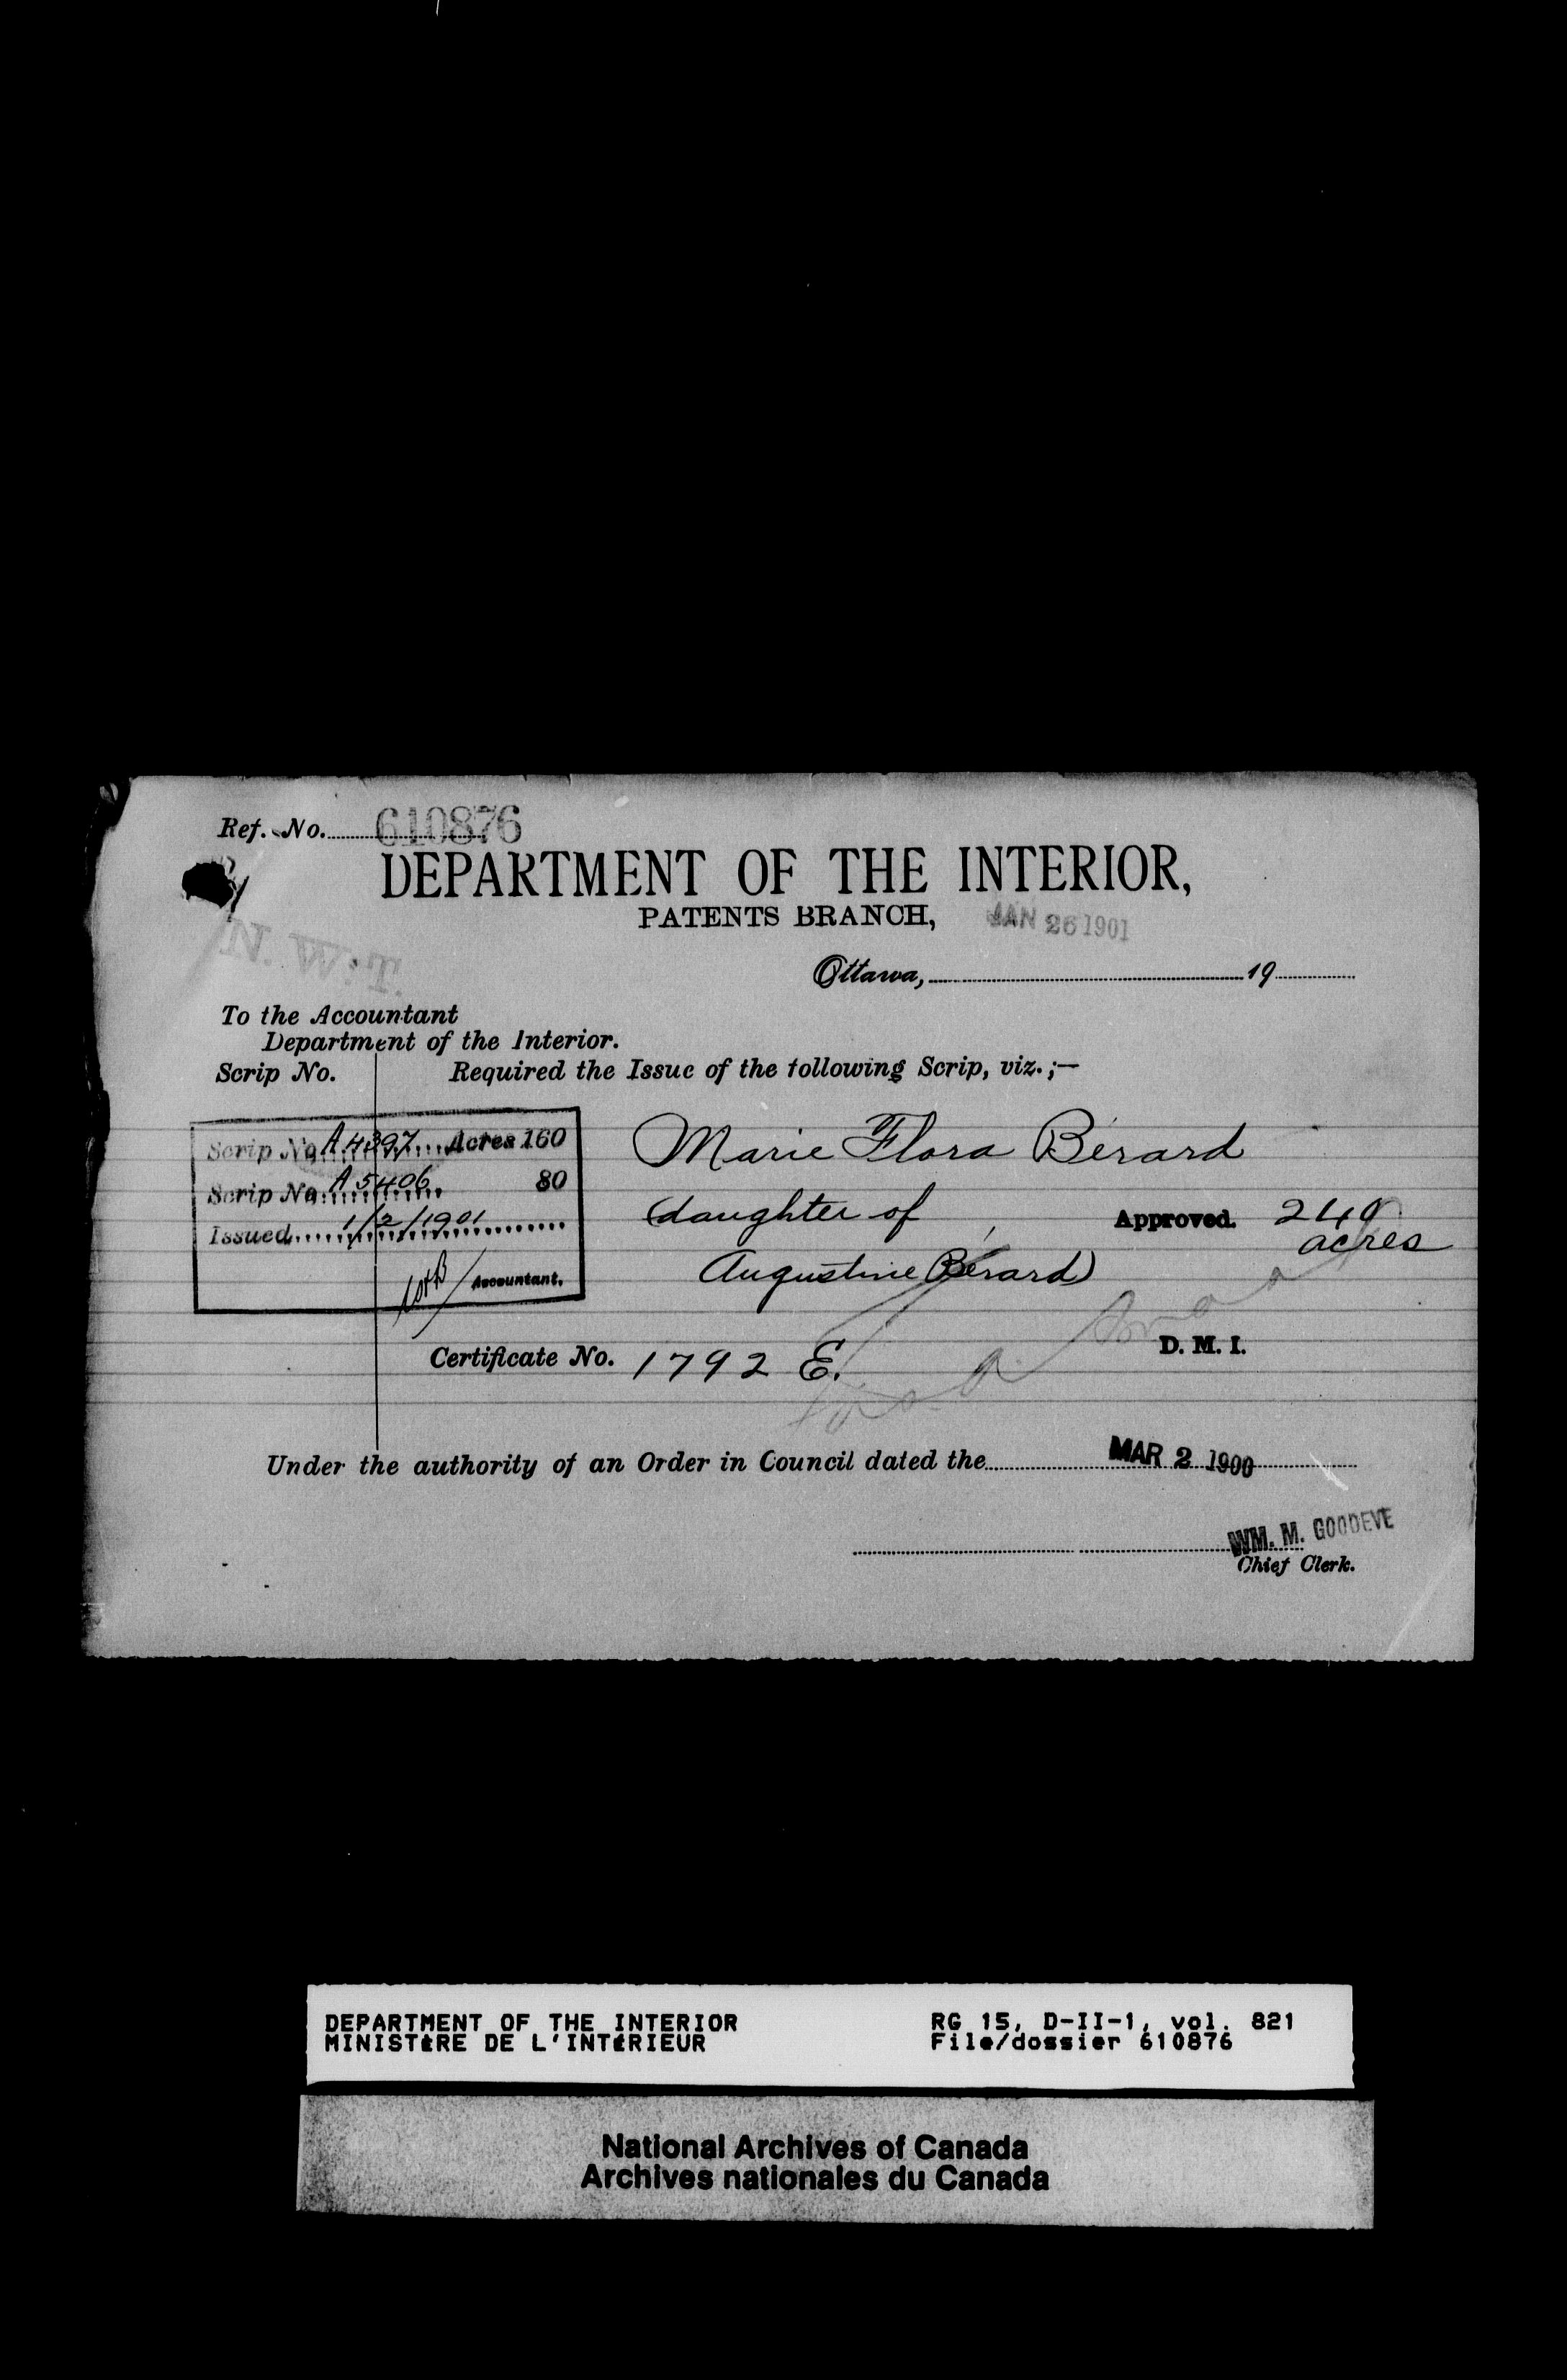 Ref. No. 610876
DEPARTMENT OF THE INTERIOR,
PATENTS BRANCH,
JAN 26 1901
N. W. T.
Ottawa, 19
To the Accountant
Department of the Interior.
Scrip No. Required the Issue of the following Scrip, viz.;—
Scrip No. A 4397 Acres 160
Scrip No. A 5406 80
Issued 1/2/1901
Accountant.
Marie Flora Bérard
(daughter of
Augustine Bérard)
Approved. 240
acres
D. M. I.
Certificate No. 1792 E.
Under the authority of an Order in Council dated the MAR 2 1900
WM. M. GOODEVE
Chief Clerk.
DEPARTMENT OF THE INTERIOR
MINISTÈRE DE L'INTÉRIEUR
RG 15, D-II-1, vol. 821
File/dossier 610876
National Archives of Canada
Archives nationales du Canada